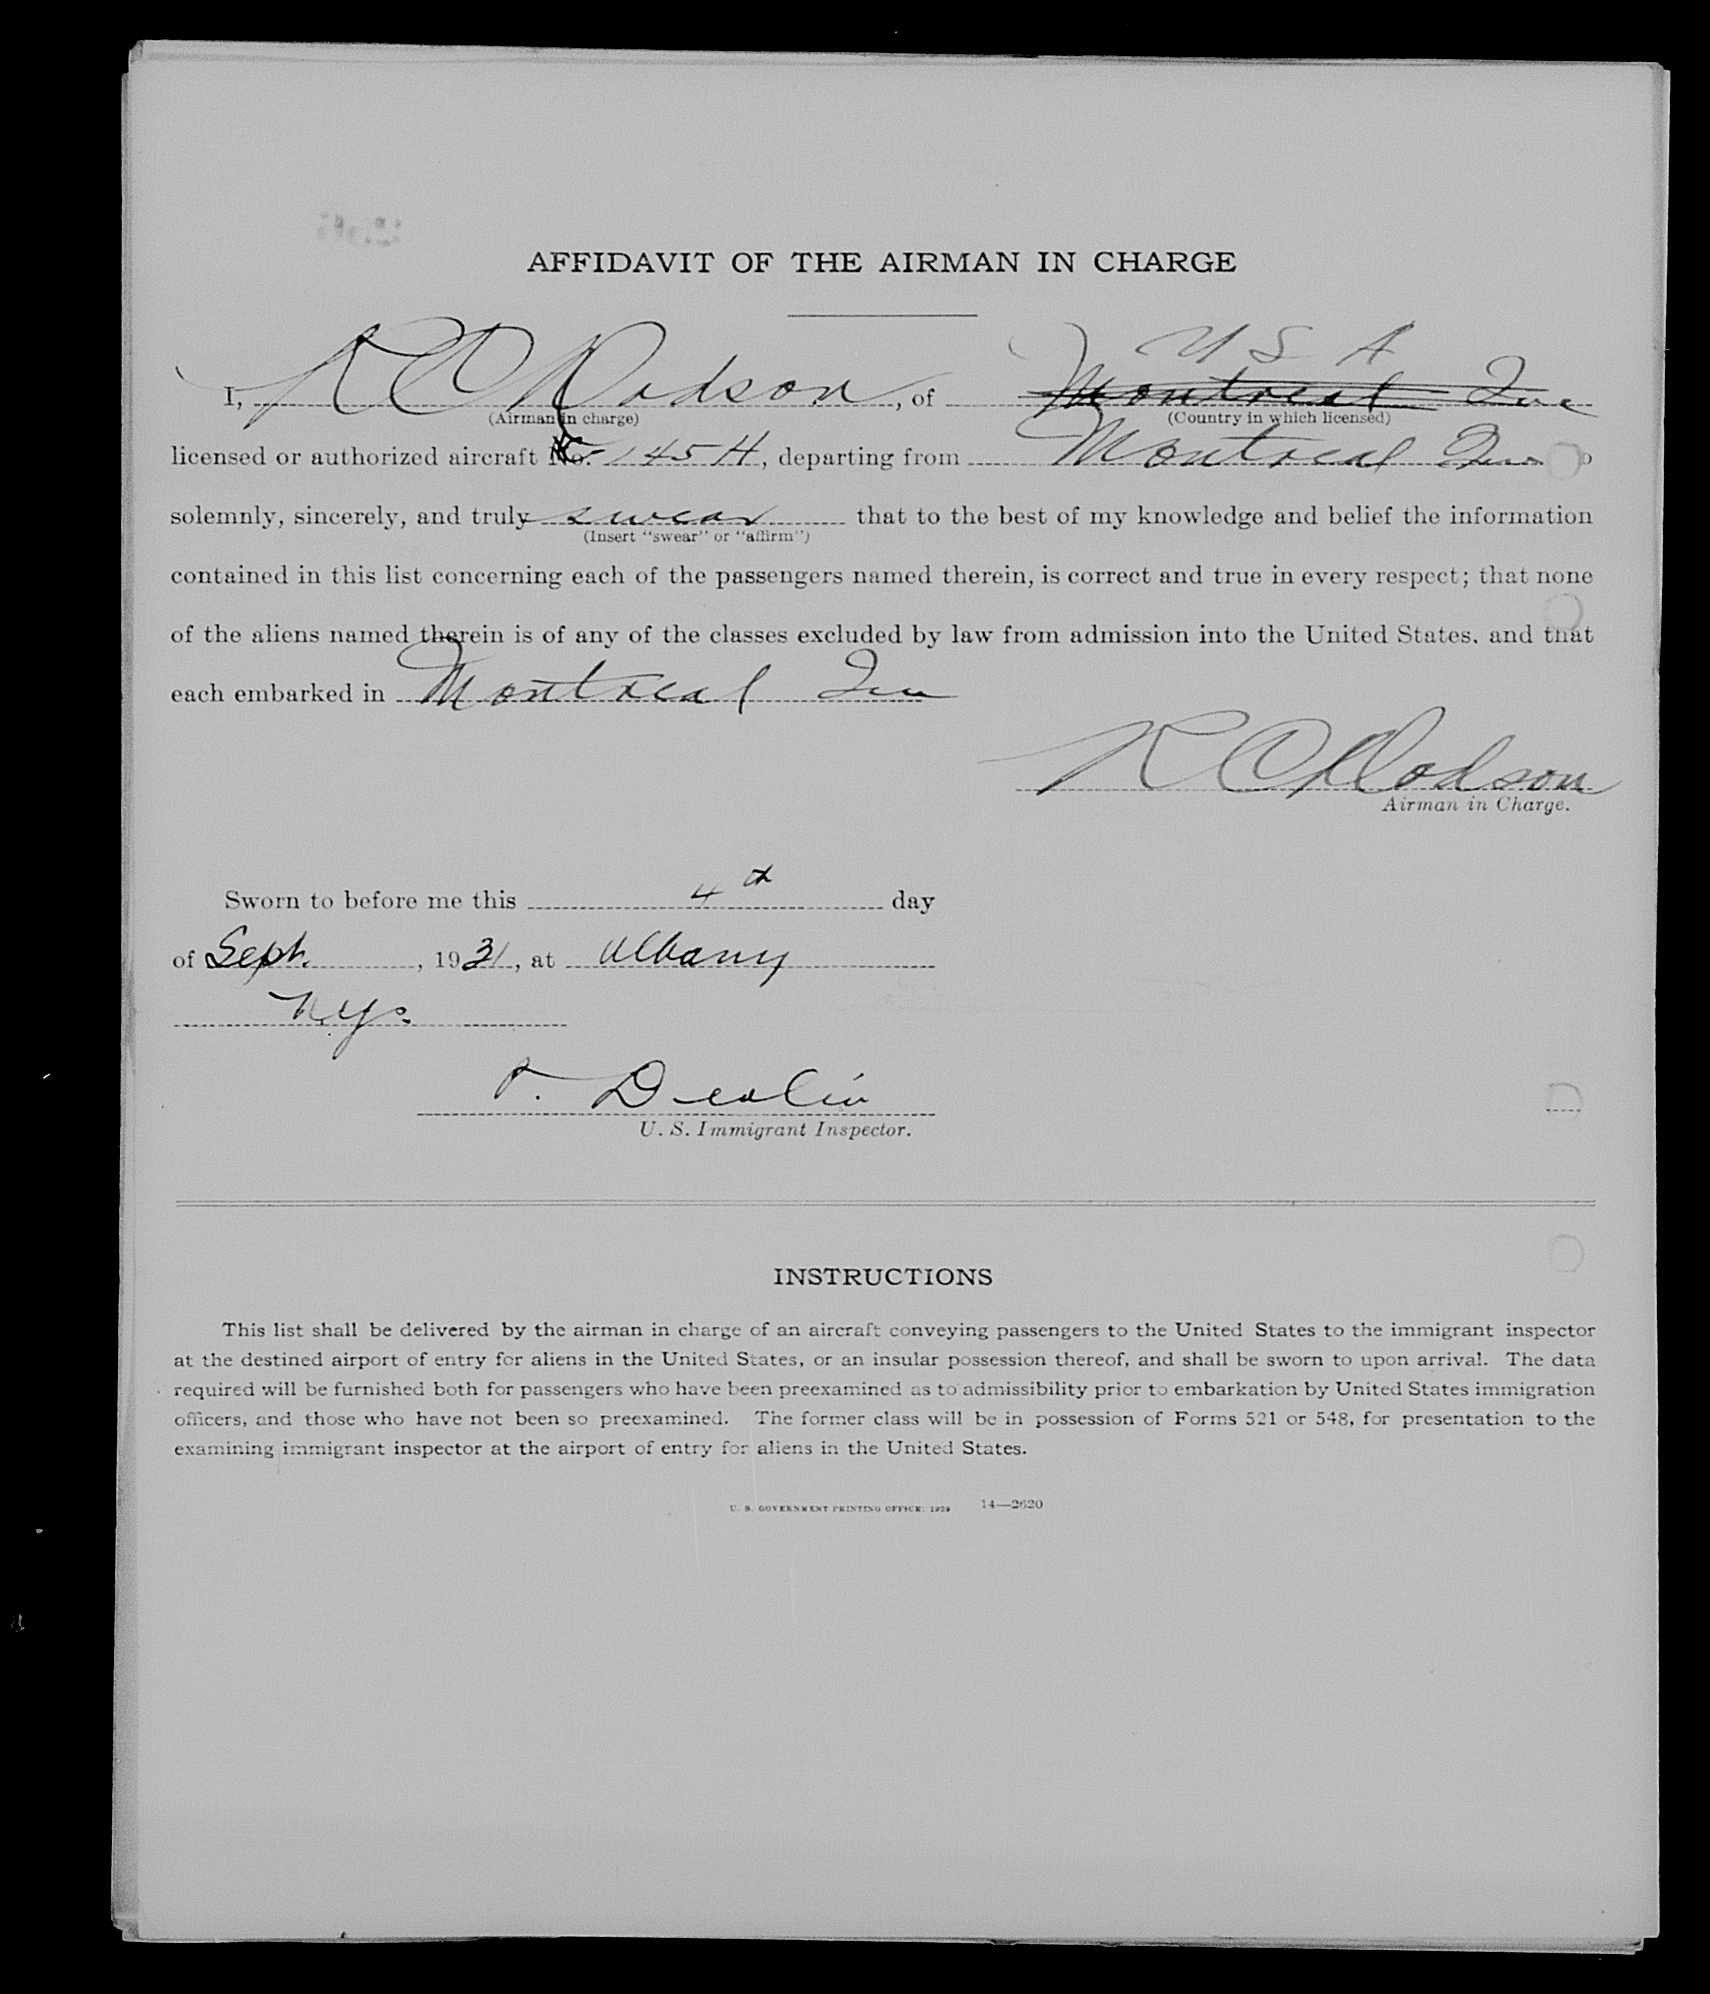 AFFIDAVIT OF THE AIRMAN IN CHARGE
U S A
I, R C Dodson, of Montreal Que
(Airman in charge) (Country in which licensed)
licensed or authorized aircraft No. 145H, departing from Montreal Que
solemnly, sincerely, and truly swear that to the best of my knowledge and belief the information
(Insert "swear" or "affirm")
contained in this list concerning each of the passengers named therein, is correct and true in every respect; that none
of the aliens named therein is of any of the classes excluded by law from admission into the United States, and that
each embarked in Montreal Que
R C Dodson
Airman in Charge.
Sworn to before me this 4th day
of Sept., 1931, at Albany
N.Y.
Devlin
U. S. Immigrant Inspector.
INSTRUCTIONS
This list shall be delivered by the airman in charge of an aircraft conveying passengers to the United States to the immigrant inspector
at the destined airport of entry for aliens in the United States, or an insular possession thereof, and shall be sworn to upon arrival. The data
required will be furnished both for passengers who have been preexamined as to admissibility prior to embarkation by United States immigration
officers, and those who have not been so preexamined. The former class will be in possession of Forms 521 or 548, for presentation to the
examining immigrant inspector at the airport of entry for aliens in the United States.
U. S. GOVERNMENT PRINTING OFFICE: 1929 14—2620